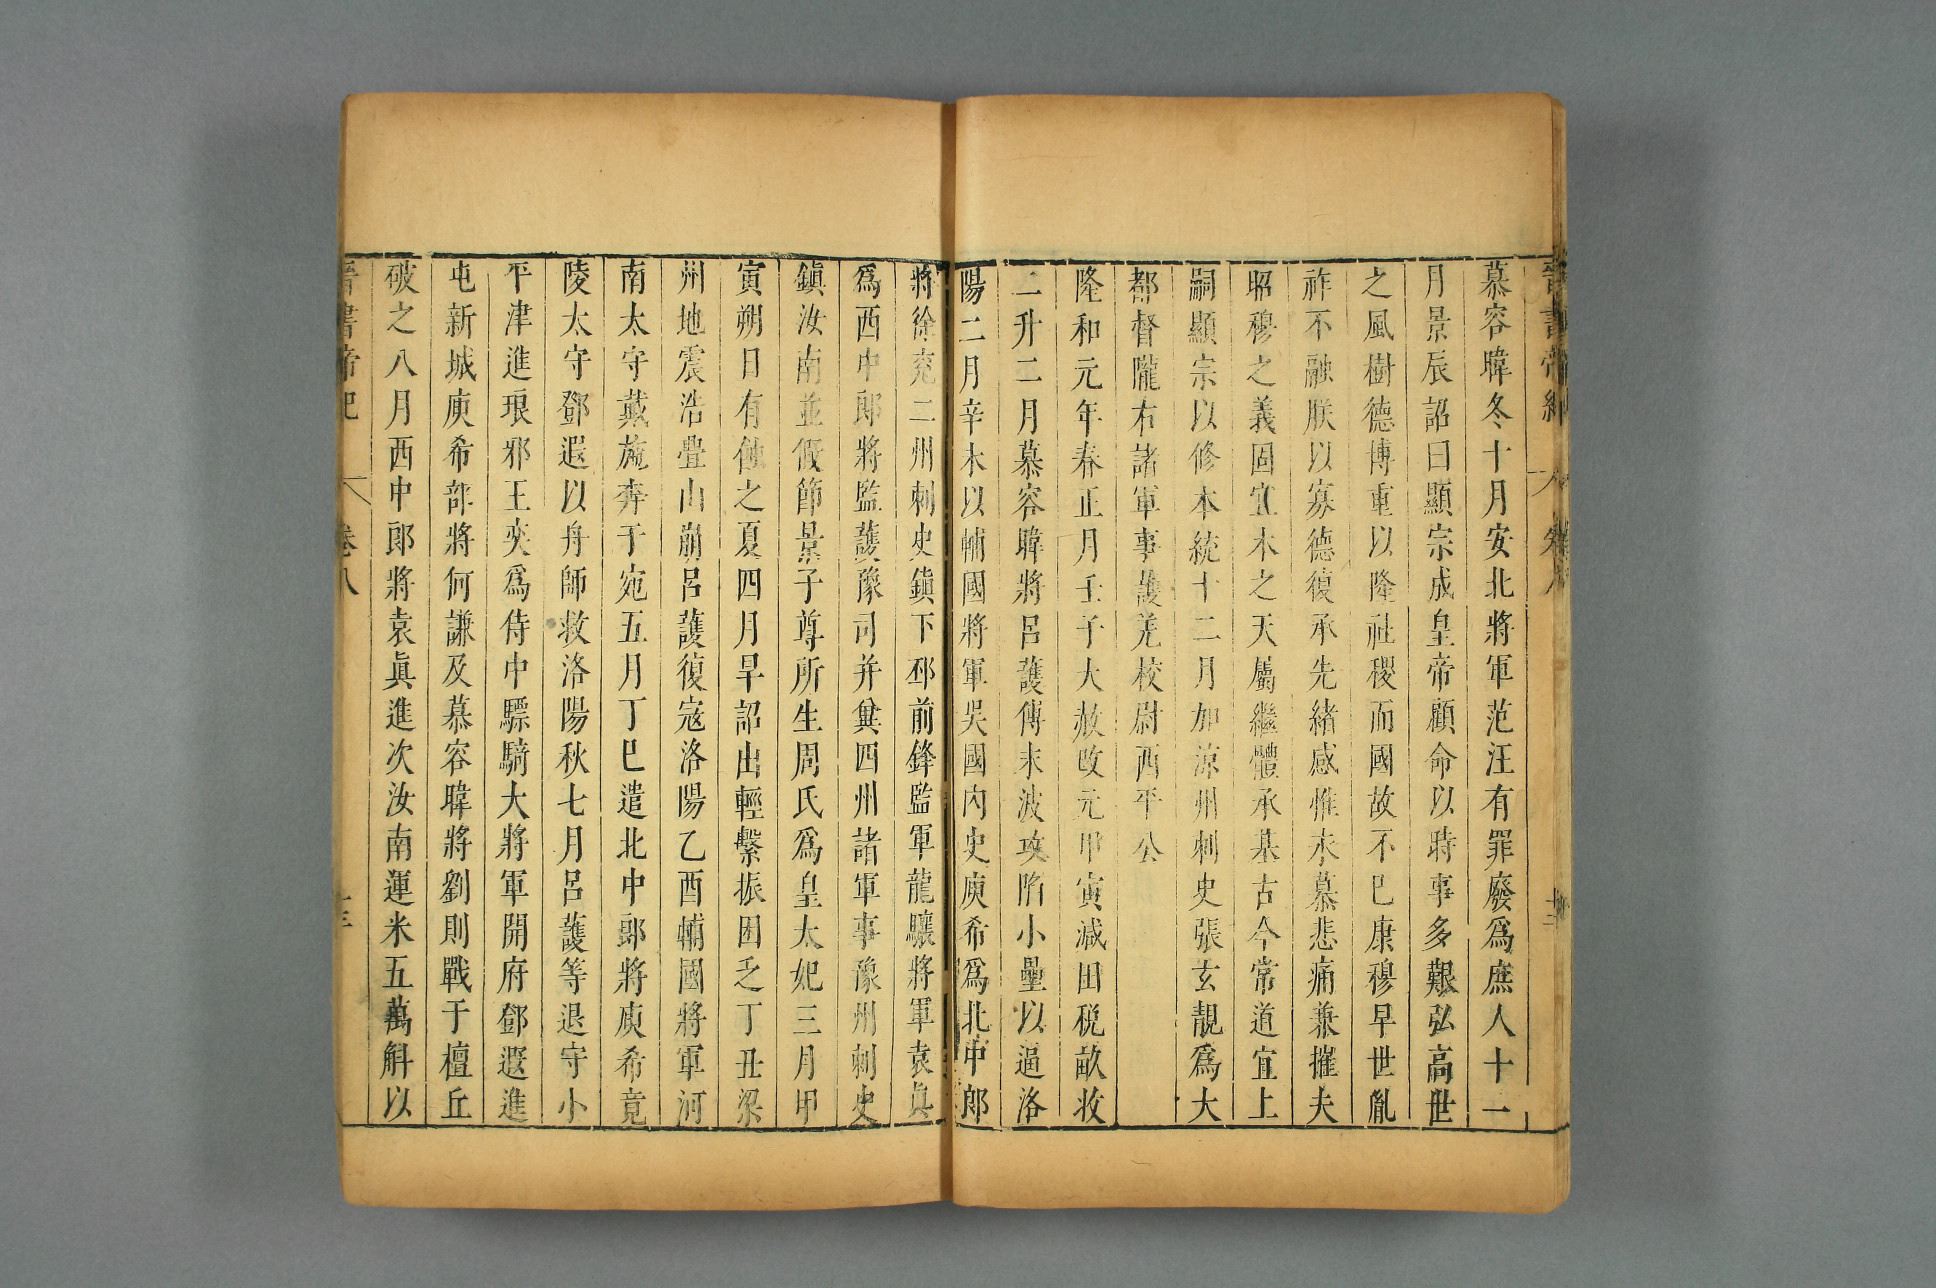 晉書帝紀 卷八 十二
慕容暐冬十月安北將軍范汪有罪廢爲庶人十二
月景辰詔曰顯宗成皇帝顧命以時事多艱弘高世
之風樹德博重以隆社稷而國故不已康穆早世胤
祚不融朕以寡德復承先緒感惟永慕悲痛兼摧夫
昭穆之義固宜本之天屬繼體承基古今常道宜上
嗣顯宗以修本統十二月加涼州刺史張玄靚爲大
都督隴右諸軍事護羌校尉西平公
隆和元年春正月壬子大赦改元甲寅減田稅畝收
二升二月慕容暐將呂護傅末波攻陷小壘以逼洛
陽二月辛未以輔國將軍吳國內史庾希爲北中郎
將徐兗二州刺史鎭下邳前鋒監軍龍驤將軍袁眞
爲西中郎將監護豫司并兾四州諸軍事豫州刺史
鎭汝南並假節景子尊所生周氏爲皇太妃三月甲
寅朔日有蝕之夏四月旱詔出輕繫振困乏丁丑梁
州地震浩亹山崩呂護復寇洛陽乙酉輔國將軍河
南太守戴施奔于宛五月丁巳遣北中郎將庾希竟
陵太守鄧遐以舟師救洛陽秋七月呂護等退守小
平津進琅邪王奕爲侍中驃騎大將軍開府鄧遐進
屯新城庾希部將何謙及慕容暐將劉則戰于檀丘
破之八月西中郎將袁眞進次汝南運米五萬斛以
晉書帝紀 卷八 十三